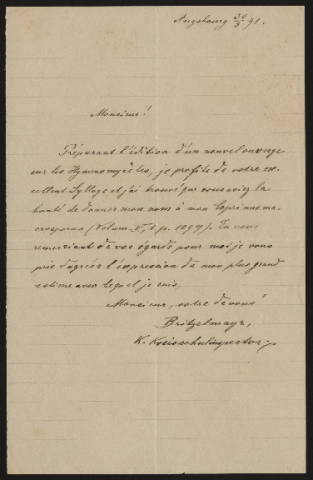 Augsbourg 30/3 91.
Monsieur!
Préparant l'édition d'un nouvel ouvrage
sur les Hyménomycètes, je profite de votre ex-
cellent Sylloge et j'ai trouvé que vous aviez la
bonté de donner mon nom à mon Coprinus ma-
crosporus (Volum. V, p. 1097). En vous
remerciant de vos égards pour moi je vous
prie d'agréer l'expression de mon plus grand
estime avec lequel je suis,
Monsieur, votre dévoué
Britzelmayr,
K. Kreisschulinspector.